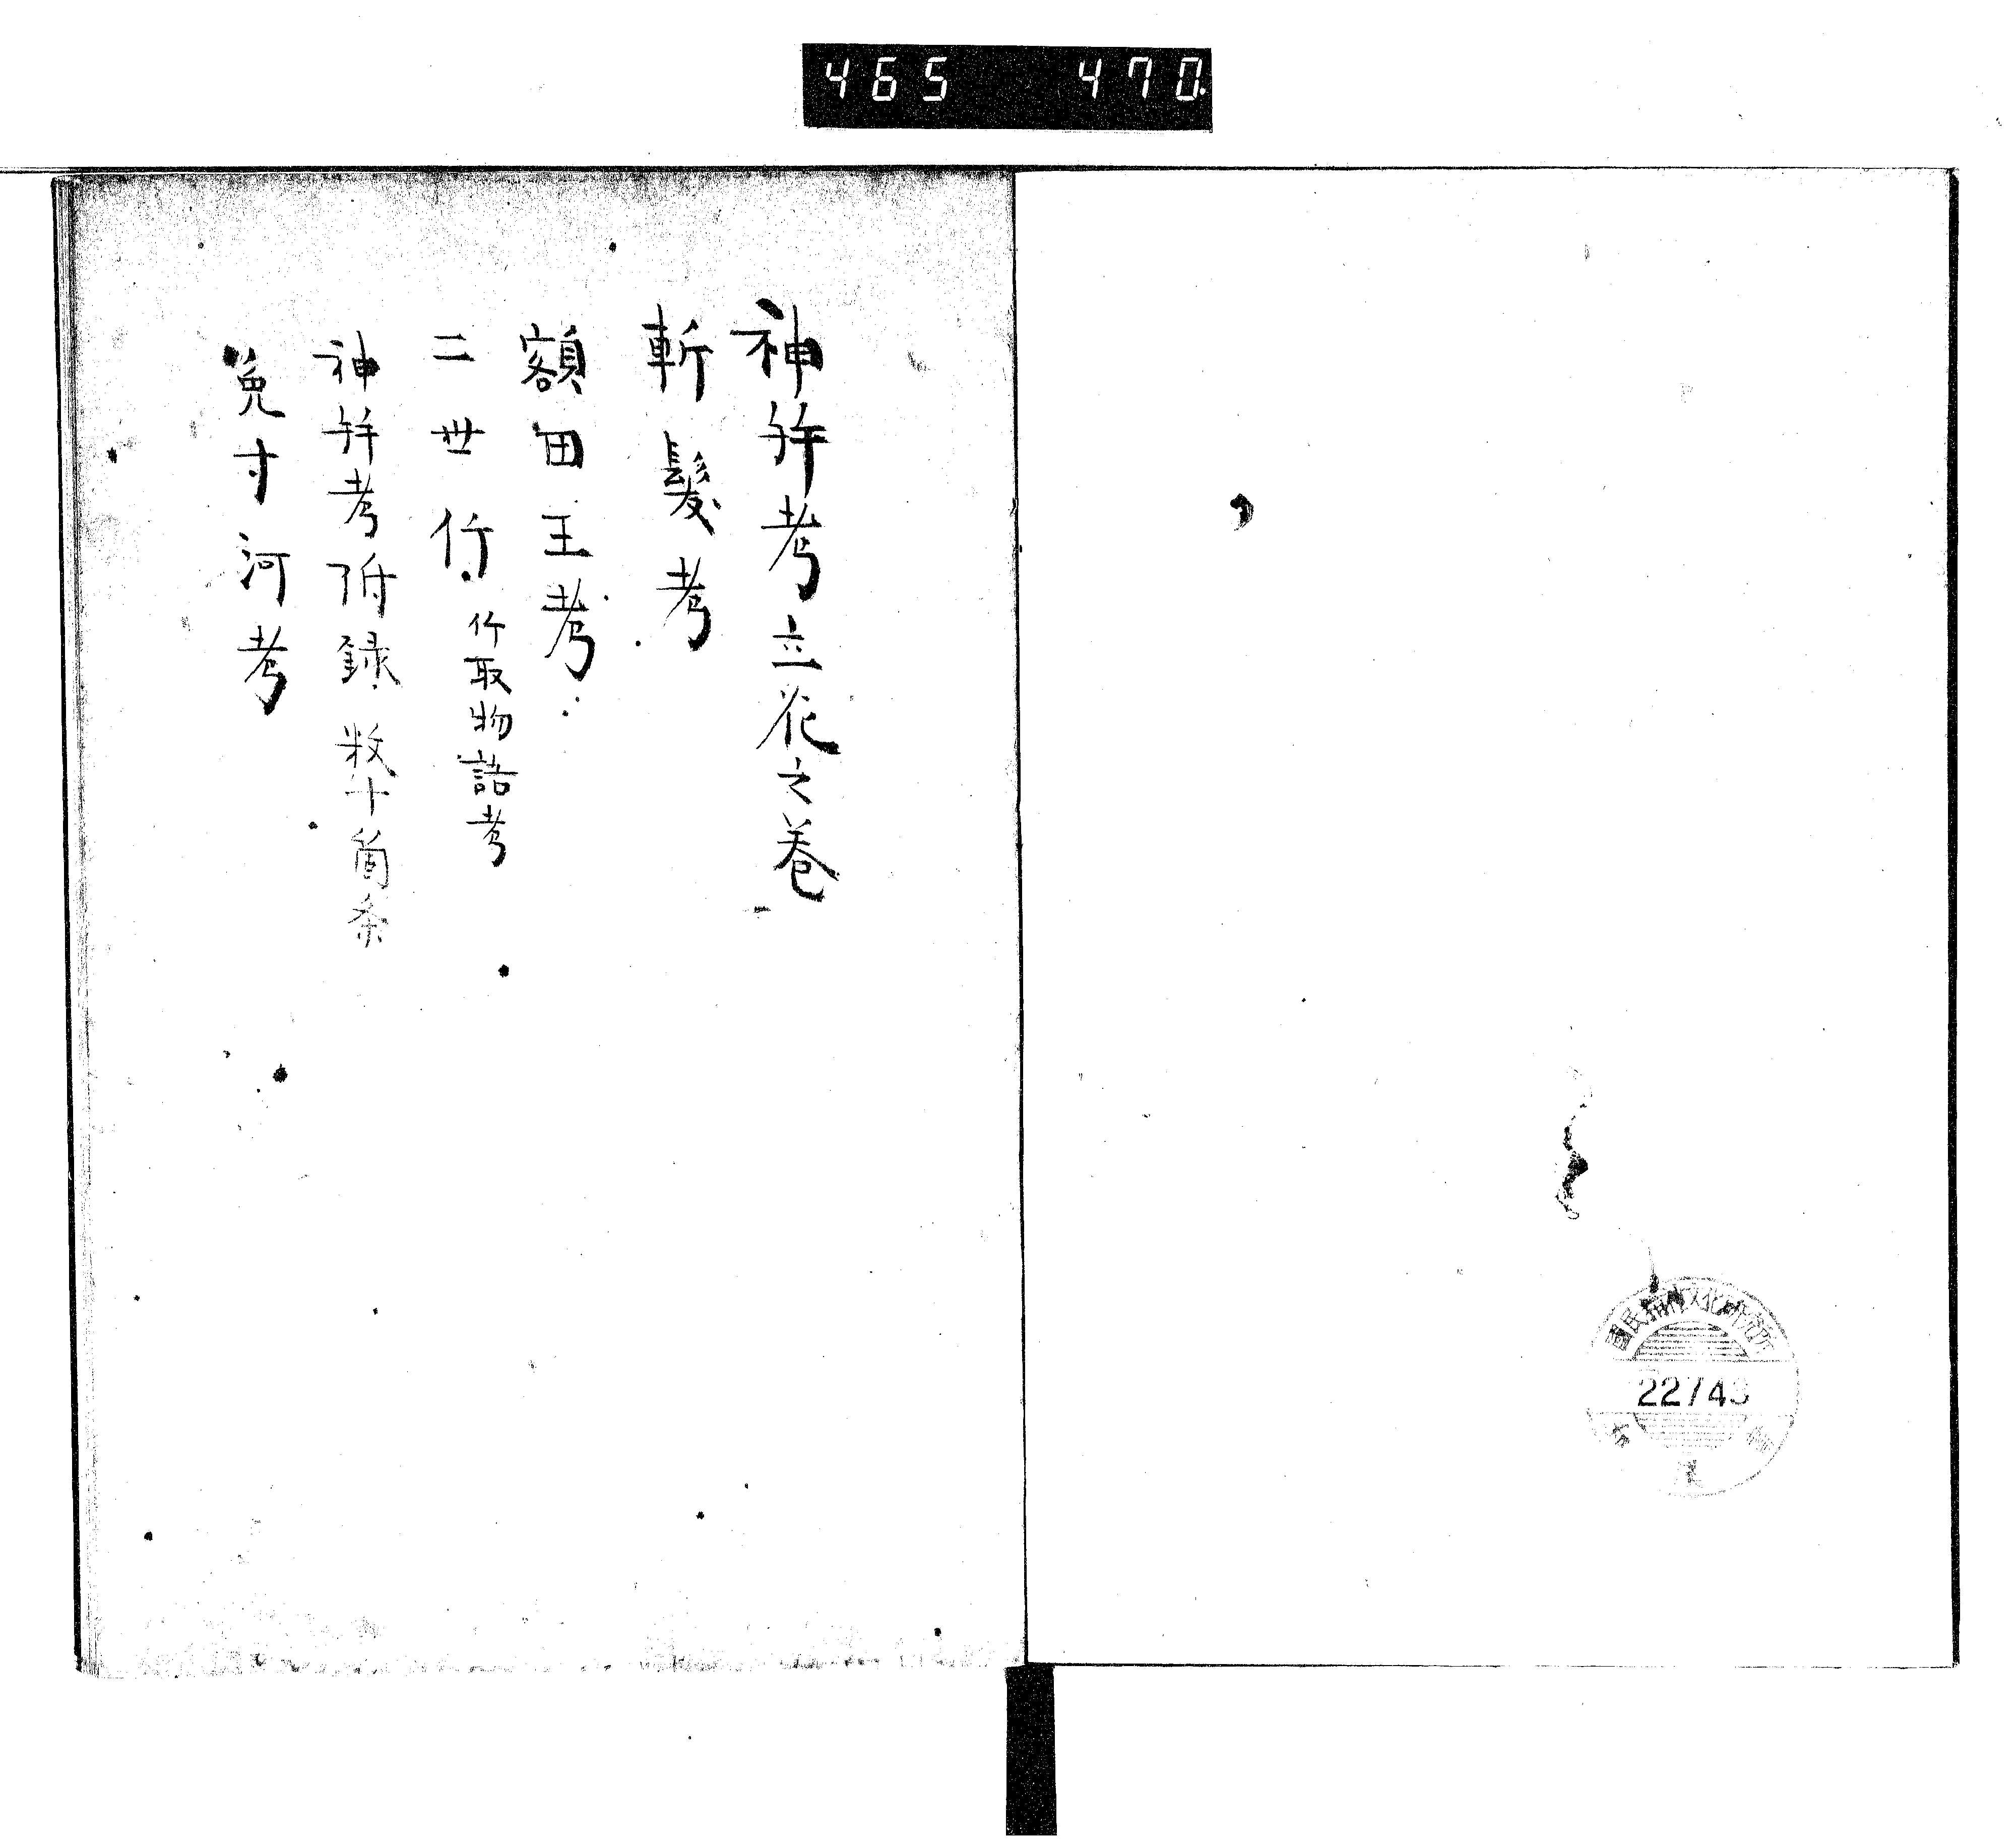 465 470
神弁考立花之巻
斬髮考
額田王考
二世竹
竹取物語考
神弁考附録 数十箇条
免寸河考
國民精神文化研究所